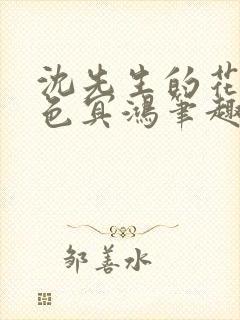 沈先生的花
色冥鸿笔趣
邹善水